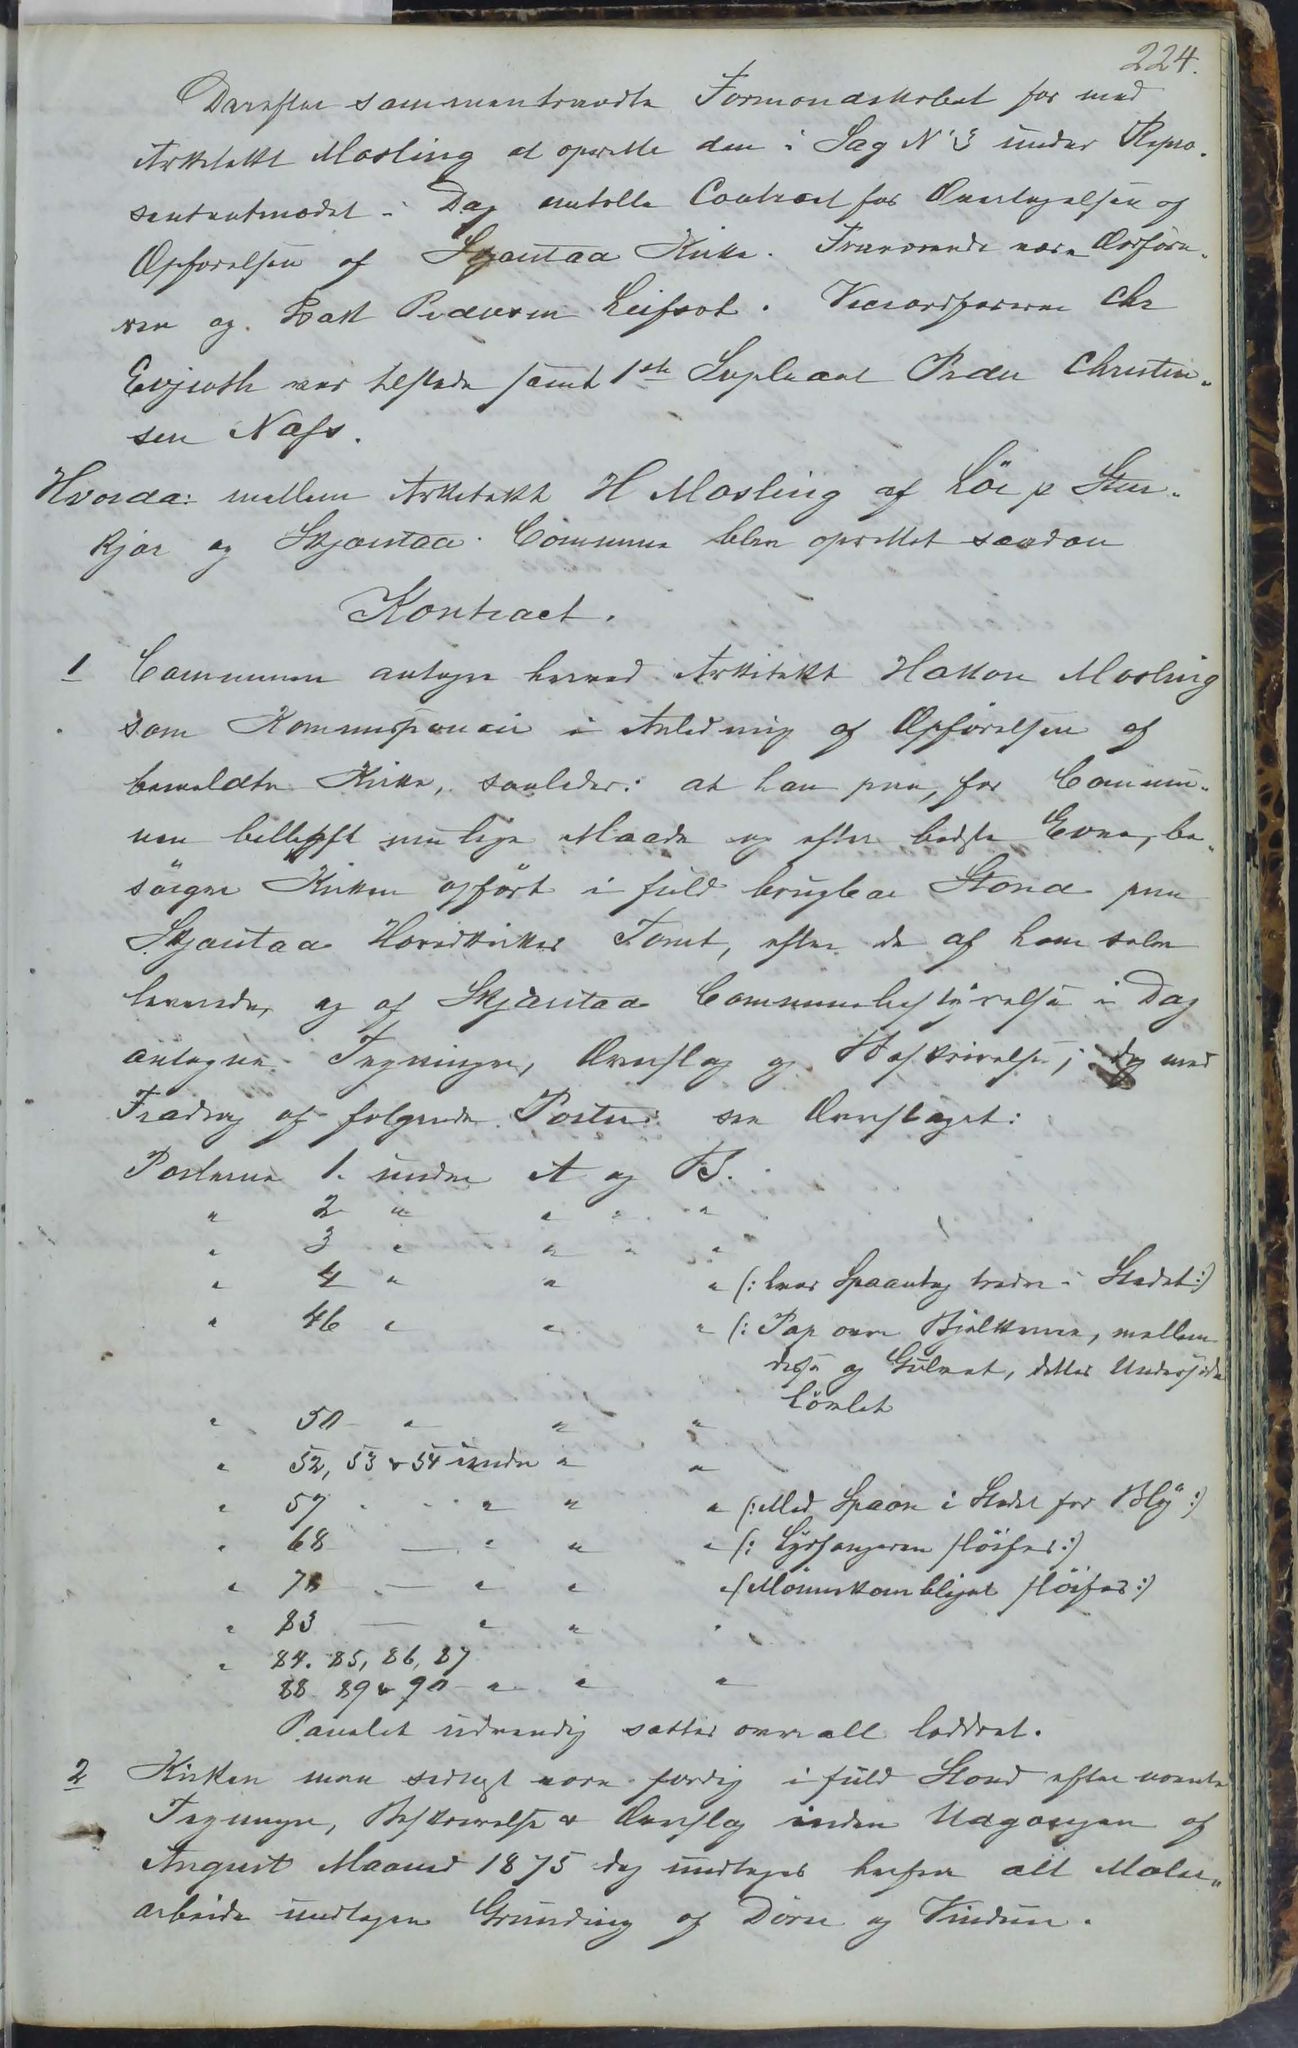 224.
Derefter sammentraadte Formandskabet for med
Arkitekt Mosling at oprette den i Sag N: 3 under Repræ-
sentantmødet i Dag omtalte Contract for Overtagelsen og
Opførelsen af Skjerstad Kirke. Fraværende vare Ordføre-
ren og Peder Pedersen Leifset. Viceordføreren Chr
Evjenth var tilstede samt 1ste Supleant Peder Christen-
sen Næss.
Hvorda: mellem Arkitekt H Mosling af Løe p Sten-
kjær og Skjerstad Commune blev oprettet saadan
Kontract.
1 Communen antager herved Arkitekt Hakon Mosling
som Kommissionair i Anledning af Opførelsen af
bemeldte Kirke, saaledes: at han paa, for Commu-
nen billigst mulige Maade og efter bedste Evne, be-
sörger Kirken opfört i fuld brugbar Stand paa
Skjerstad Hovedkirkes Tomt, efter de af ham selv
leverede, og af Skjerstad Communebestyrelse i Dag
antagne Tegninger, Overslag og Beskrivelse; dog med
Fradrag af følgende Poster: se Overslaget:
Posterne 1. under A og B.
" 2 " " " "
" 3 " " " "
" 4 " " " (: hvor Spaantag træder i Stedet :)
" 46 " " " (: Pap over Bjelkerne, mellem
disse og Gulvet, dettes Underside
" 50 " " "
" 52, 53 & 54 under " "
" 57 " " " (: Med Spaan i Stedet for Bly :)
" 68 — " " " (: Lydfangeren slöifes :)
" 78 — " " " (Mönnekamblyet slöifes :)
" 83 — " " "
" 84. 85, 86, 87
88 89 & 90 " " "
Panelet udvendig sættes overalt loddret.
2 Kirken maa sidst være færdig i fuld Stand efter nævnte
Tegninger, Beskrivelse & Overslag inden Udgangen af
August Maaned 1875 dog undtages herfra alt Maler-
arbeide undtagen Grunding af Döre og Vinduer.